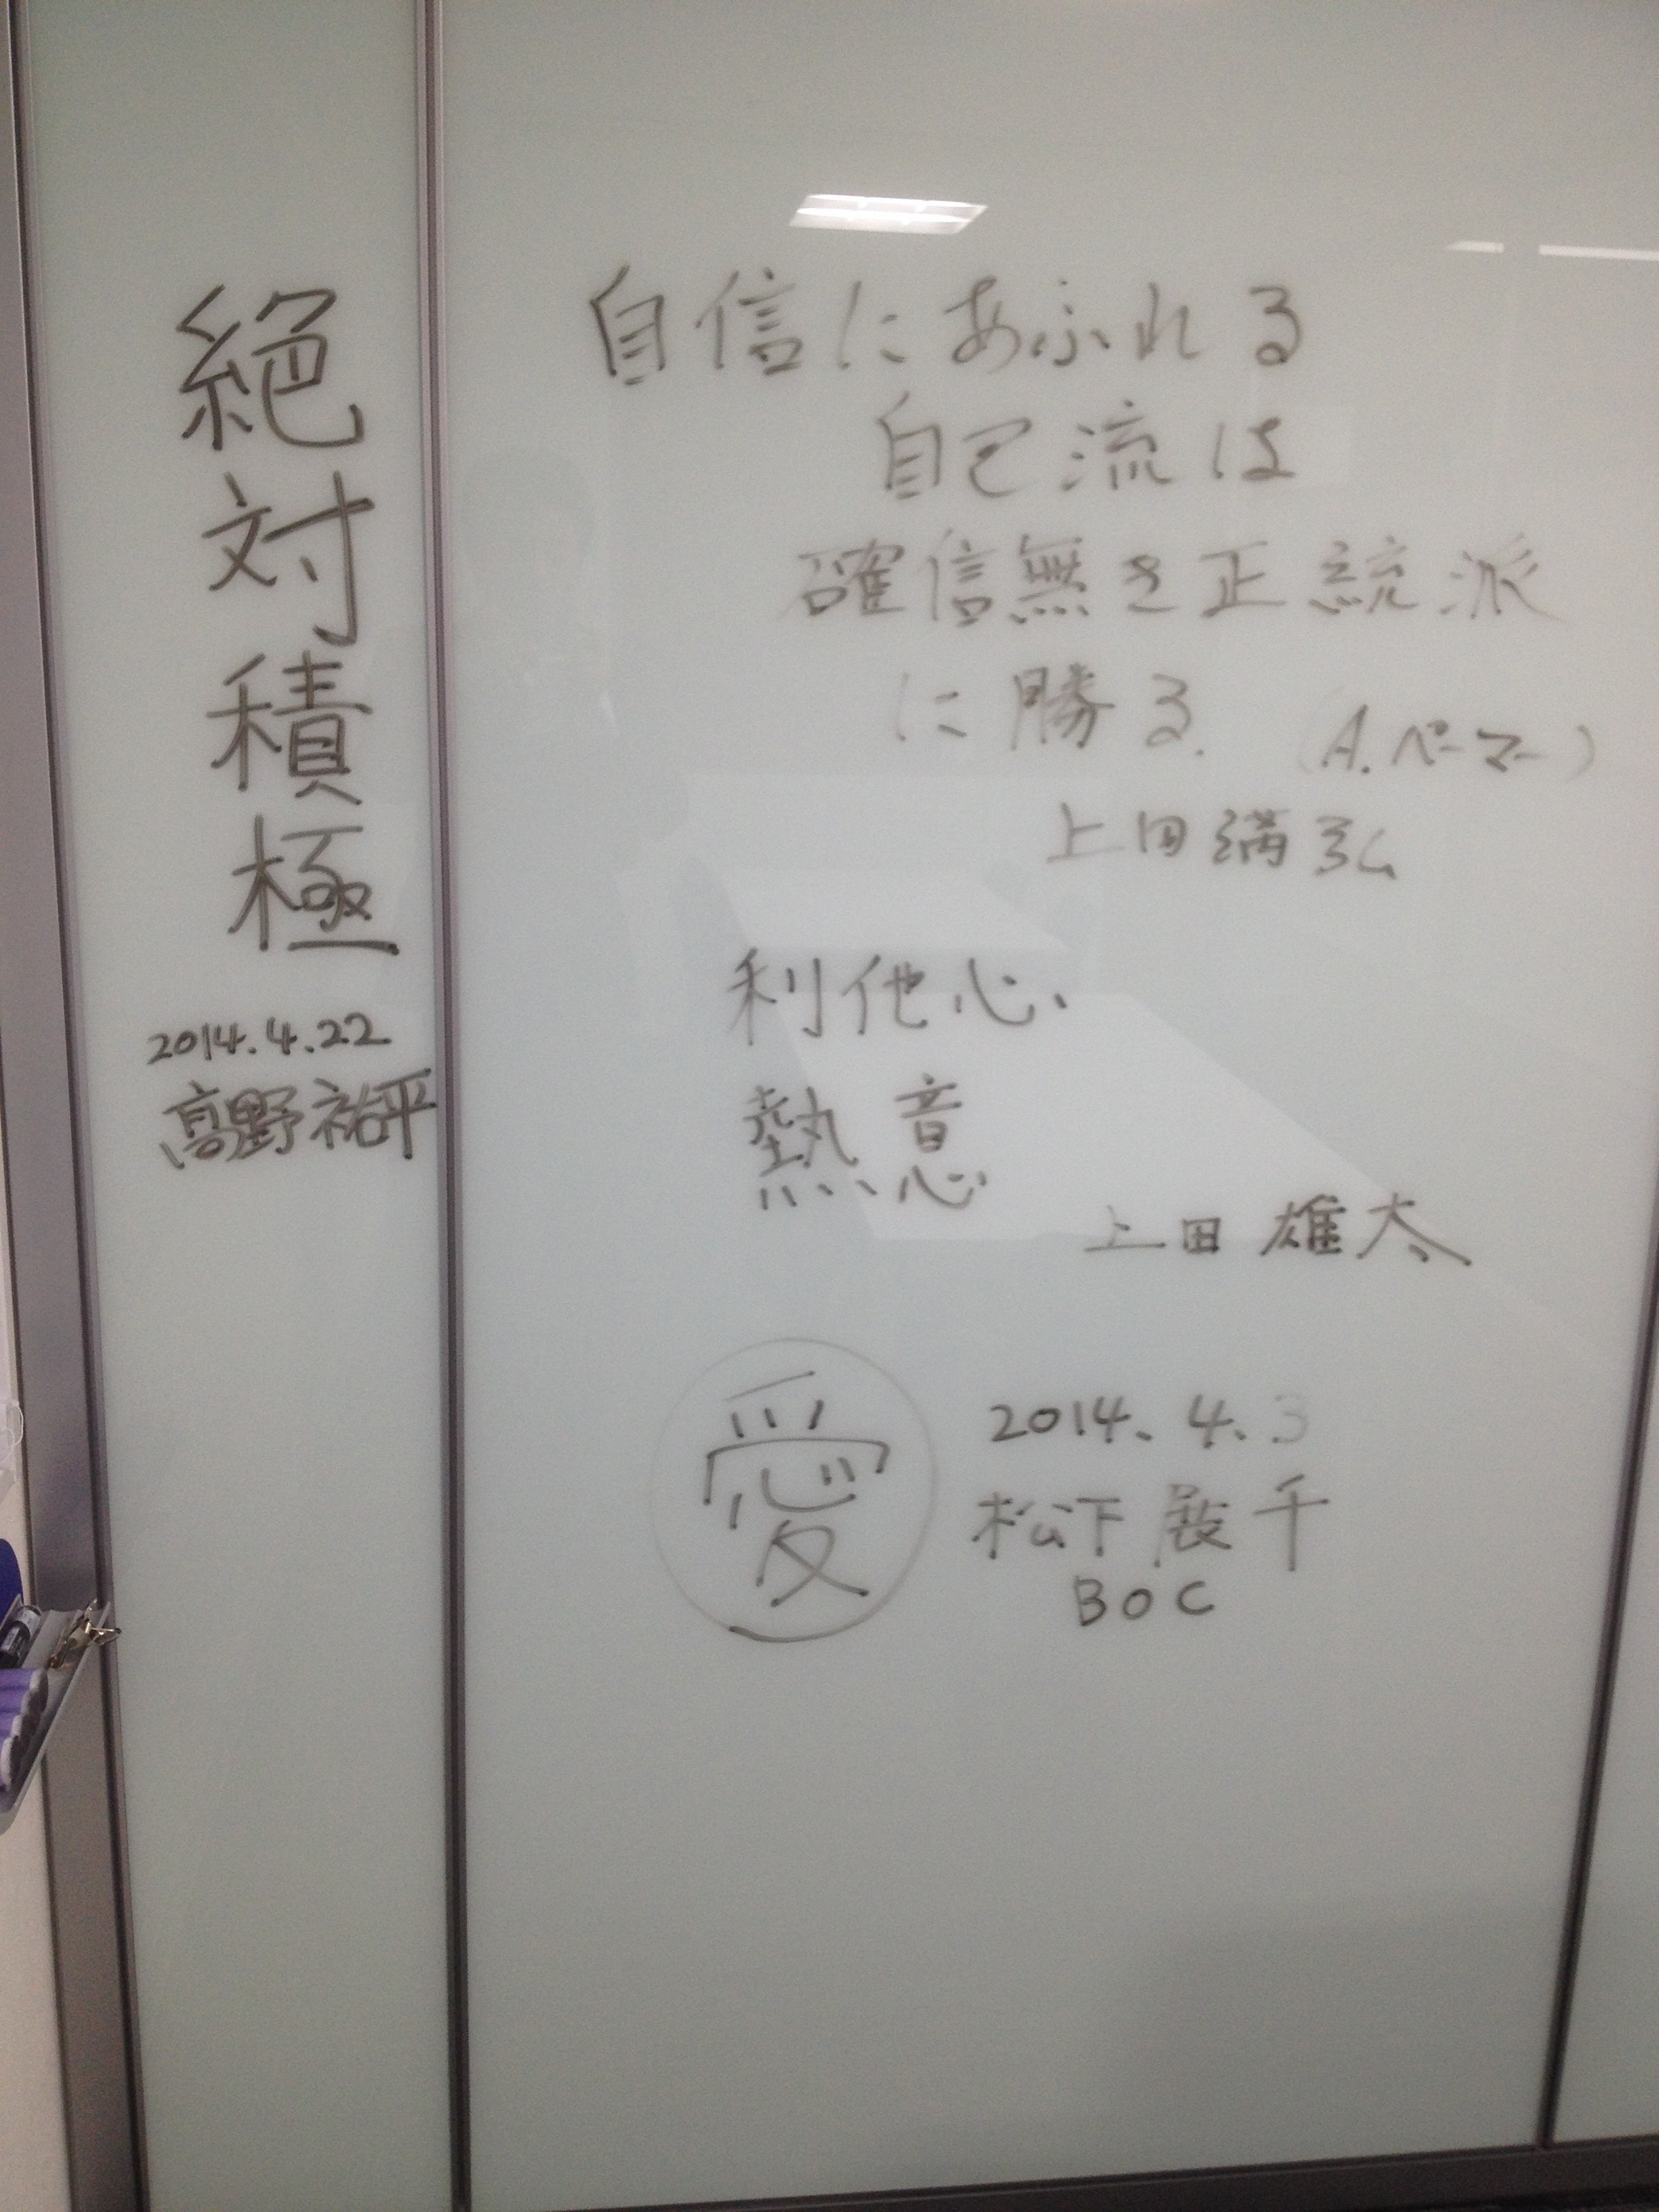 絶対積極
2014.4.22
髙野祐平
自信にあふれる
自己流は
確信無き正統派
に勝る.
(A.パーマー)
上田満弘
利他心
熱意
上田雄太
愛
2014.4.3
松下展千
BOC